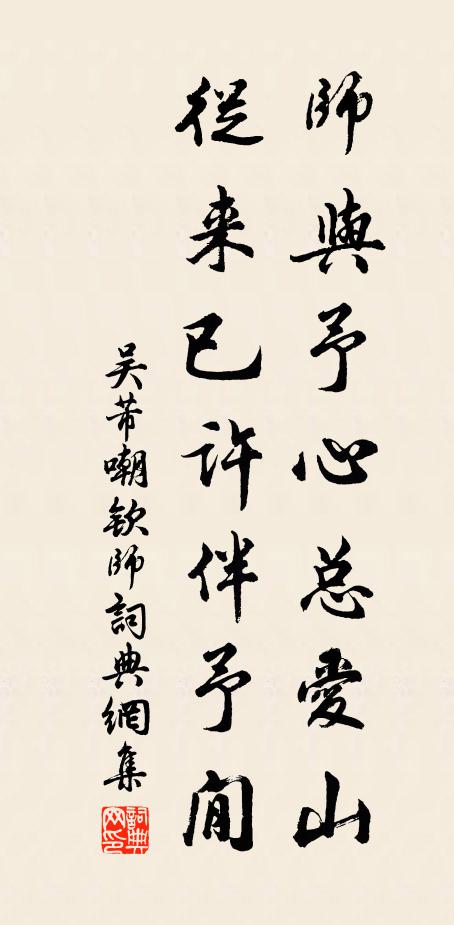 師與予心总愛山
從来已許伴予閒
吴芾嘲欽師詞典網集
詞典网印